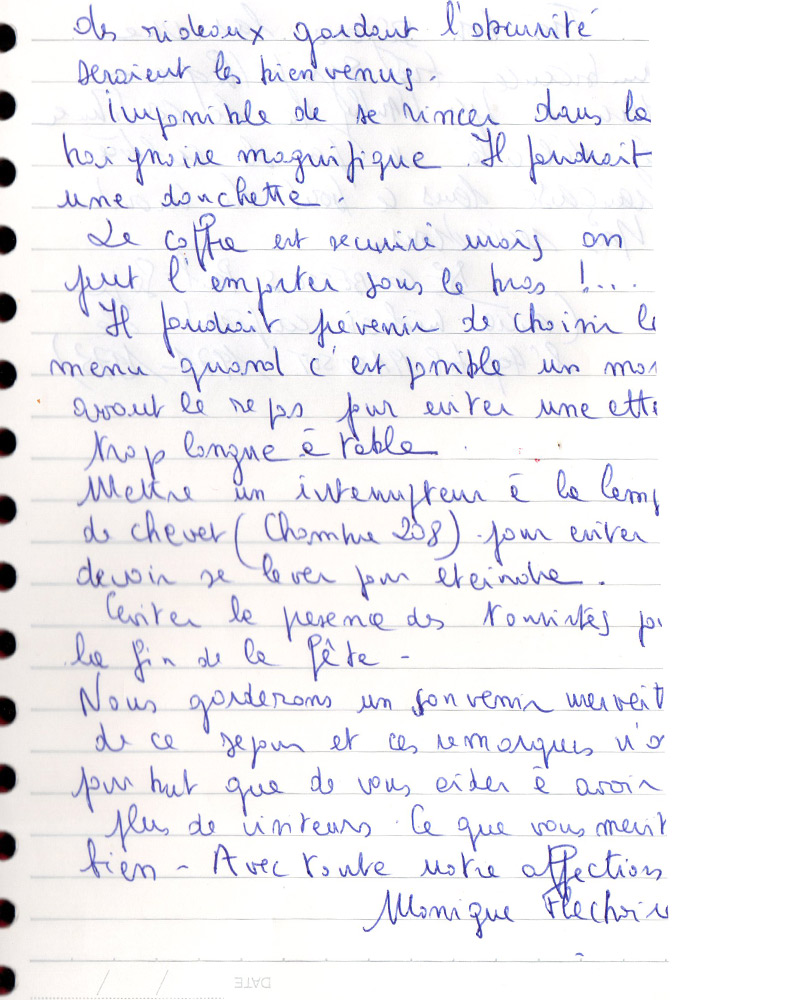 des rideaux gardant l'obscurité
seraient les bien venus.
Impossible de se rincer dans la
baignoire magnifique. Il faudrait
une douchette.
Le coffre est securisé mais on
peut l'emporter sous le bras !...
Il faudrait prévenir de choisir le
menu quand c'est possible un mo
avant le repas pour eviter une atte
trop longue à table.
Mettre un interrupteur à la lamp
de chevet (Chambre 208) pour eviter
devoir se lever pour eteindre.
Eviter la presence des touristes
la fin de la fête -
Nous garderons un souvenir merveil
de ce sejour et ces remarques n'o
pour but que de vous aider à avoir
plus de visiteurs. Ce que vous merit
bien - Avec toute notre affection
Monique
DATE